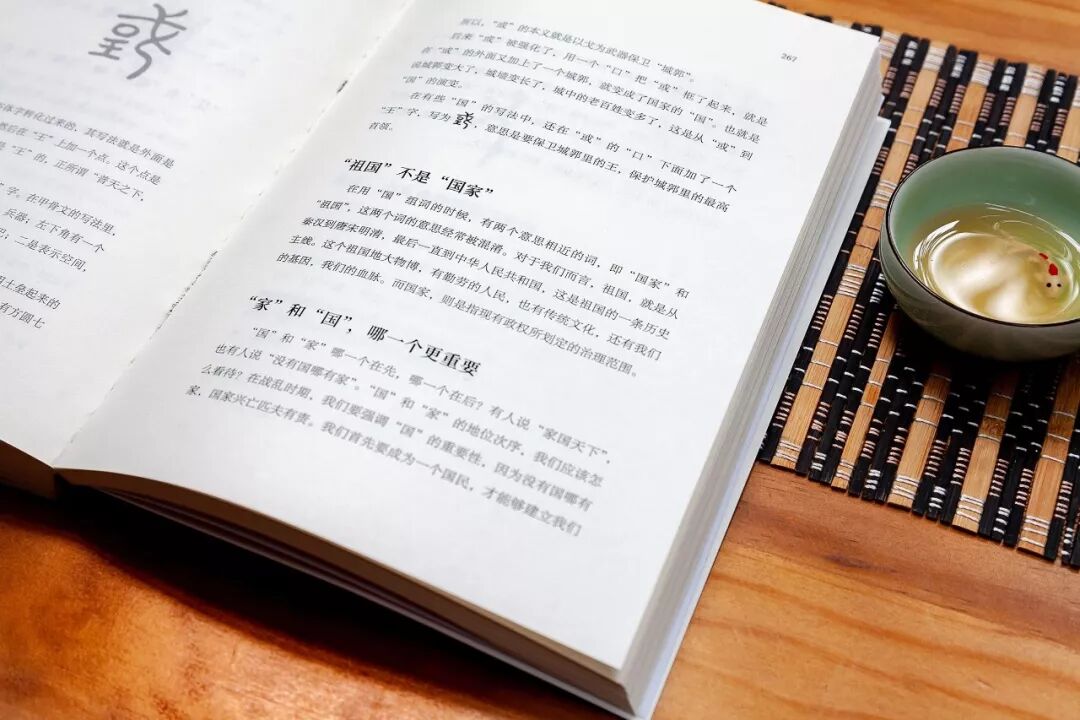 字体字转化过来的，其写法就是外面是
然后在“王”上加一个点。这个点是
是“王”的，正所谓“普天之下，
字。在甲骨文的写法里，
兵器；左下角有一个
巴；二是表示空间，
用土垒起来的
有方圆七
267
所以，“或”的本义就是以戈为武器保卫“城郭”。
后来“或”被强化了，用一个“口”把“或”框了起来，就是
在“或”的外面又加上了一个城郭，就变成了国家的“国”。也就是
说城郭变大了，城墙变长了，城中的老百姓变多了，这是从“或”到
“国”的演变。
在有些“国”的写法中，还在“或”的“口”下面加了一个
“王”字，写为，意思是要保卫城郭里的王，保护城郭里的最高
首领。
“祖国”不是“国家”
在用“国”组词的时候，有两个意思相近的词，即“国家”和
“祖国”，这两个词的意思经常被混淆。对于我们而言，祖国，就是从
秦汉到唐宋明清，最后一直到中华人民共和国，这是祖国的一条历史
主线。这个祖国地大物博，有勤劳的人民，也有传统文化，还有我们
的基因，我们的血脉。而国家，则是指现有政权所划定的治理范围。
“家”和“国”，哪一个更重要
“国”和“家”哪一个在先，哪一个在后？有人说“家国天下”，
也有人说“没有国哪有家”。“国”和“家”的地位次序，我们应该怎
么看待？在战乱时期，我们要强调“国”的重要性，因为没有国哪有
家，国家兴亡匹夫有责。我们首先要成为一个国民，才能够建立我们